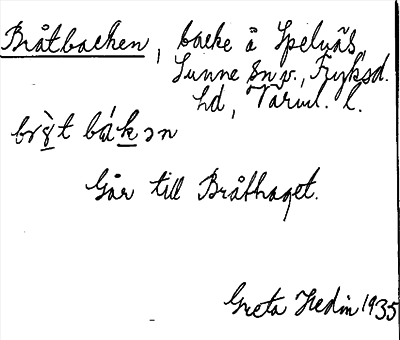 Bråtbacken, backe å Spelnäs,
Sunne sn., Fryksd.
hd, Värml. l.
Går till Bråthaget.
Greta Hedin 1935